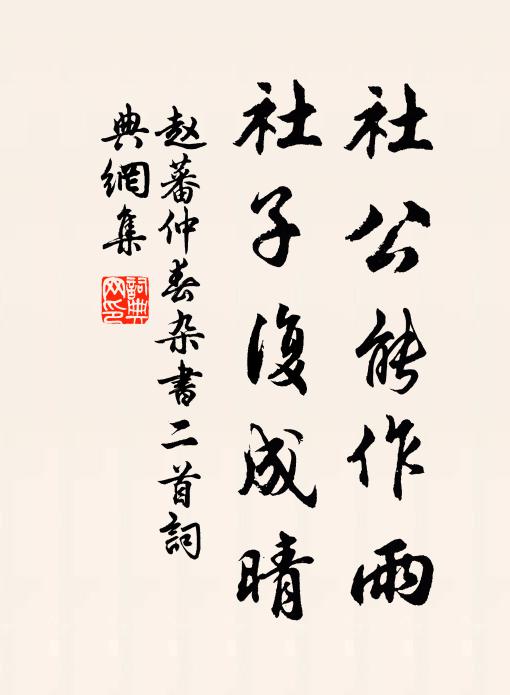 社公能作雨
社子復成晴
赵蕃仲春杂書二首詞
典網集
詞典
网印